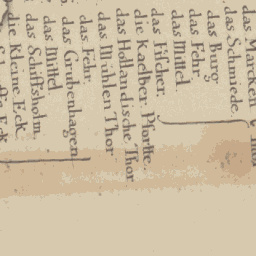 das Schmiede.
das Burg
das Fehr.
das Mittel.
das Fischer.
die Kadber. Pfortte.
das Hollandische Thor
das Muhlen Thor
das Fehr.
das Grubenhagen.
das Mittel
das Schiffsholm.
die Kleine Eck.